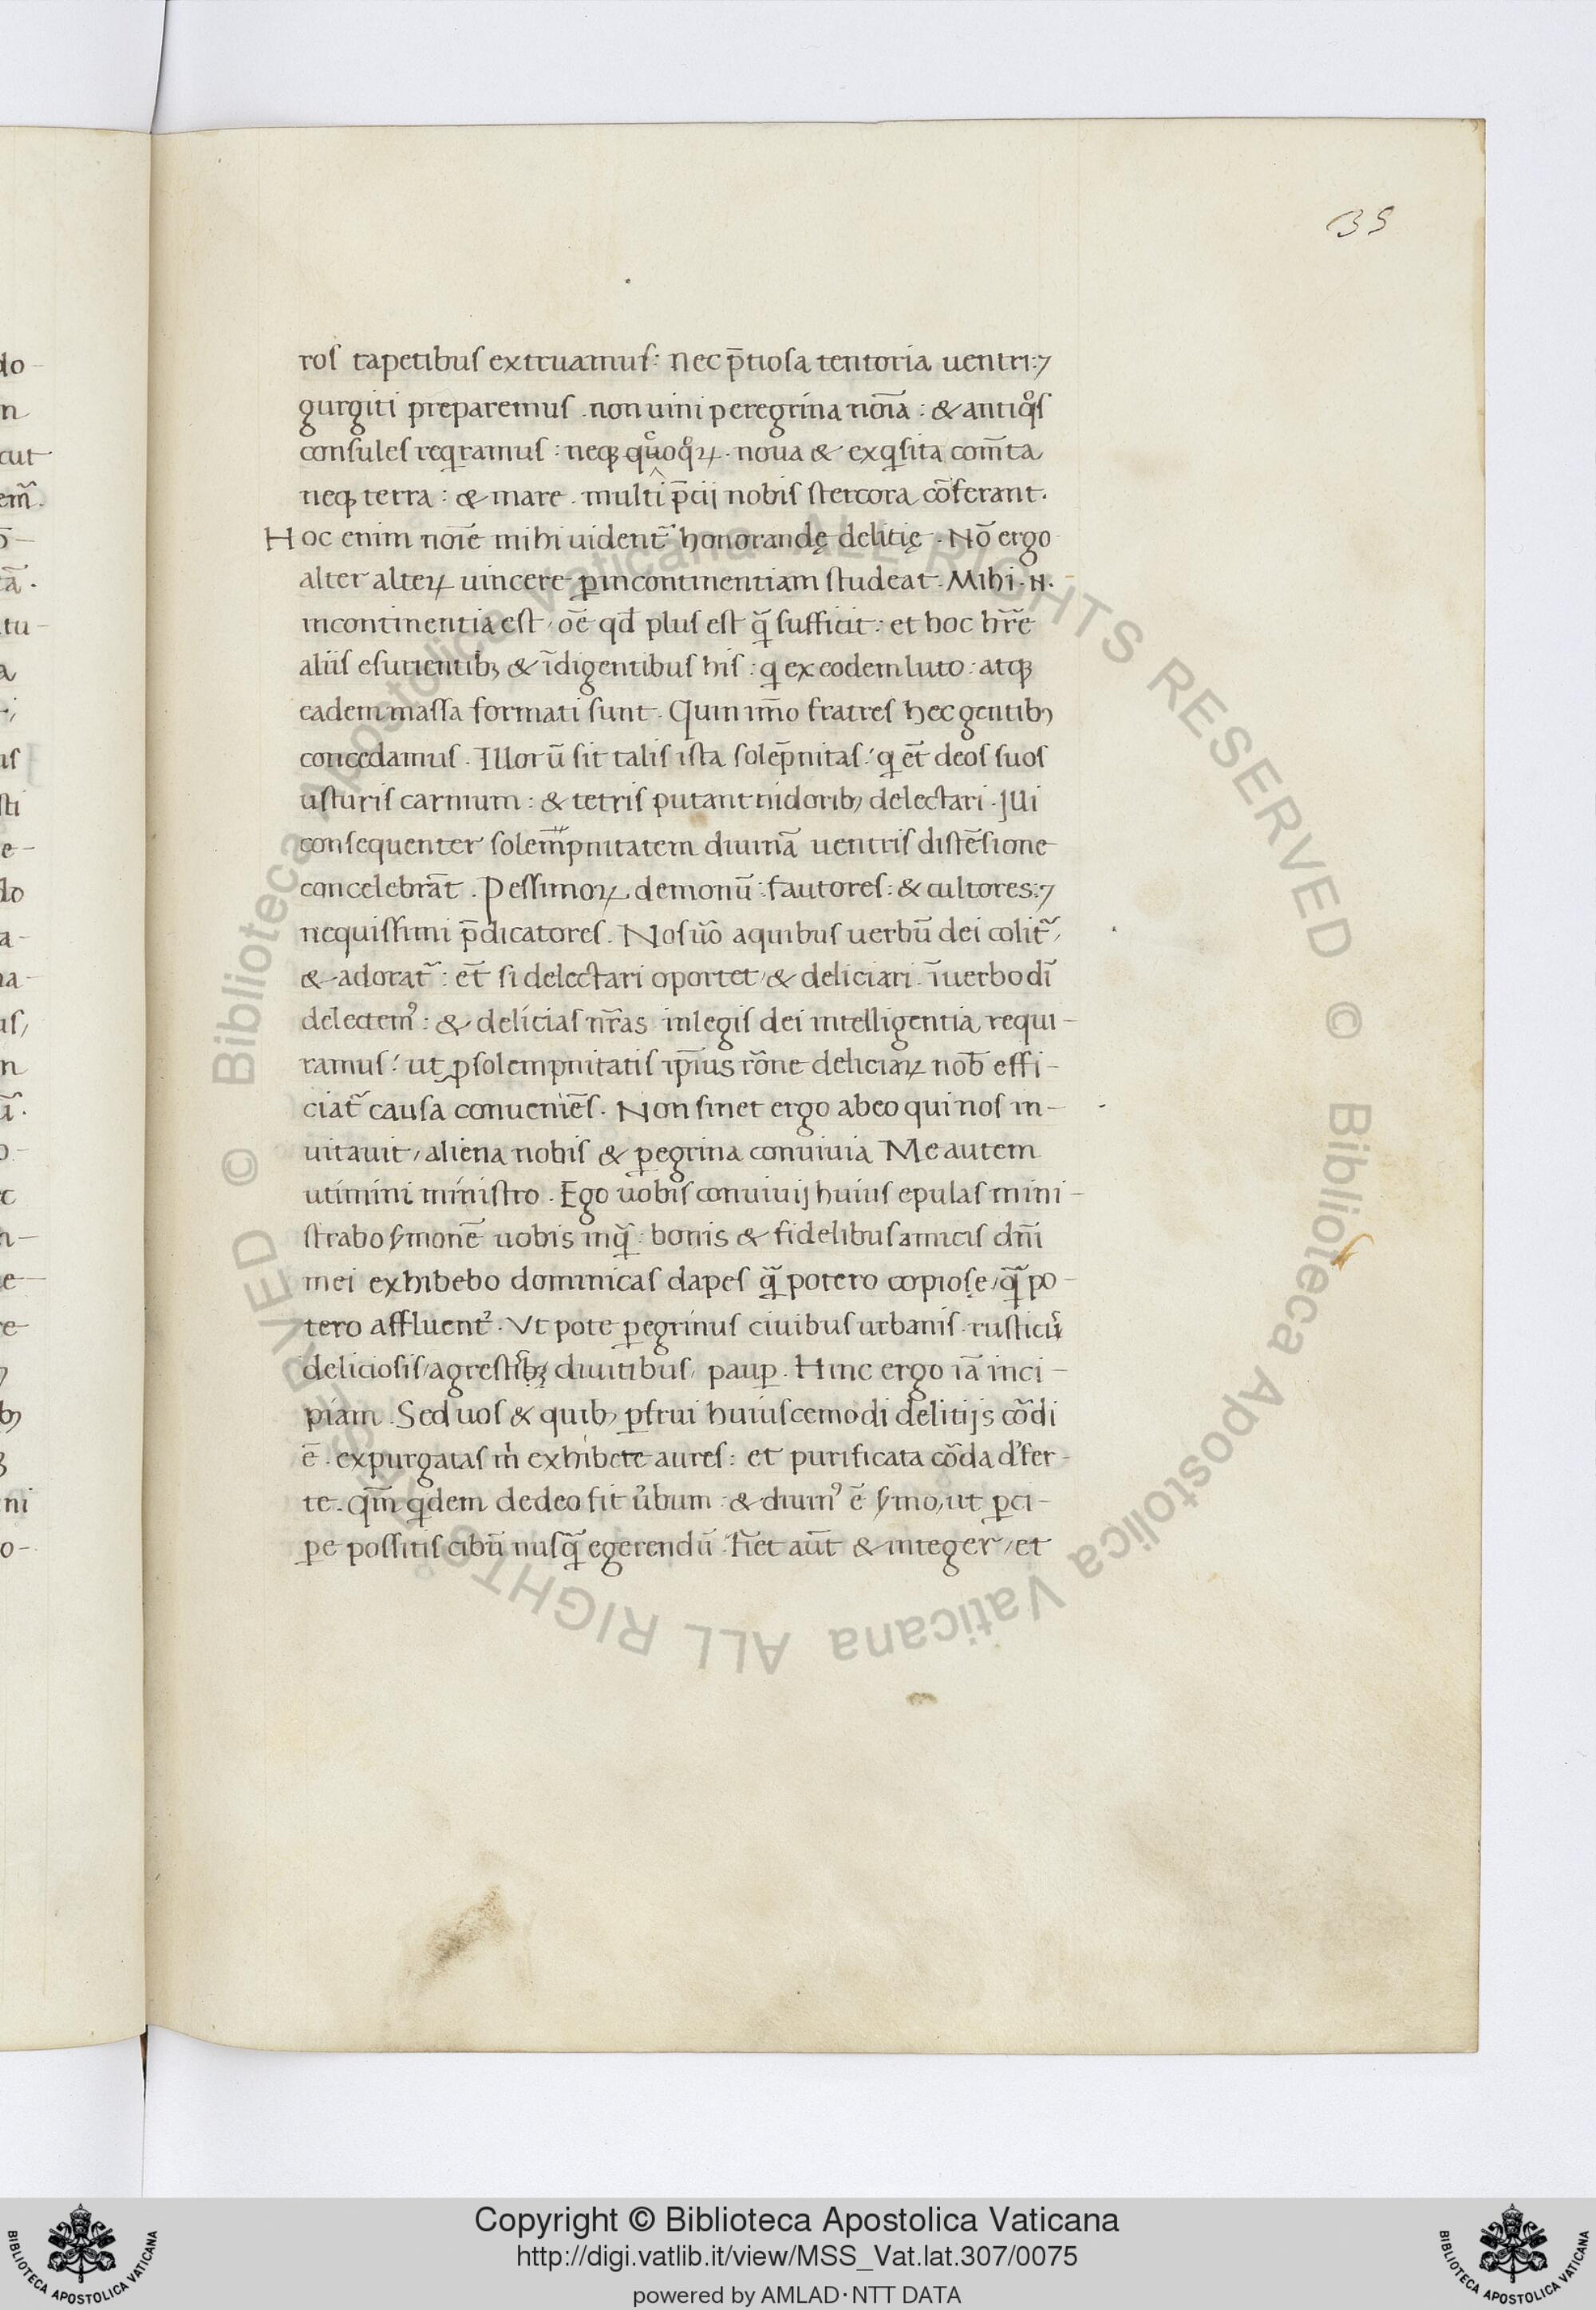 135
do-
n
cut
em̃.
tã.
tu-
a
us
sti
e-
do
a-
na-
us,
n
ũ.
o-
c
n-
e-
re
bꝫ
ni
o-
ros tapetibus extruamus: nec p̄tiosa tentoria uentri:⁊
gurgiti preparemus . non uini peregrina noīa : & antiqͦs
consules reqͥramus : neqꝫ qͨuoqͦꝝ . noua & exqͥsita com̄ta
neqꝫ terra : & mare . multi p̄cij nobis stercora cōferant.
Hoc enim noīe mihi uident᷑ honorandę delitię . Nō ergo
alter alteꝝ uincere ꝑ incontinentiam studeat . Mihi .n.
incontinentia est, oē qd̄ plus est qͣ̃ sufficit : et hoc hr̃e
aliis esurientibꝫ & īdigentibus his : qͥ ex eodem luto : atqꝫ
eadem massa formati sunt . Quin im̄o fratres hec gentibꝫ
concedamus . Illorũ sit talis ista solēpnitas :́ qͥ et̄ deos suos
usturis carnium : & tetris putant nidoribꝫ delectari . Illi
consequenter solem̄pnitatem diuinā uentris distēsione
concelebrāt . Pessimoꝝ demonũ : fautores : & cultores :⁊
nequissimi p̄dicatores . Nos ũo a quibus uerbũ dei colit᷑,
& adorat᷑ : et̄ si delectari oportet, & deliciari . ī uerbo dī
delectemꝰ : & delicias nr̃as in legis dei intelligentia requi-
ramus :́ ut ꝓ solempnitatis ip̄ius rōne deliciaꝝ nob̄ effi-
ciat᷑ causa conueniēs . Non sinet ergo ab eo qui nos in-
uitauit, aliena nobis & ꝑegrina conuiuia Me autem
utimini ministro . Ego uobis conuiuij huius epulas mini-
strabo s̕monē uobis inqͣ̃ : bonis & fidelibus amicis dn̄i
mei exhibebo dominicas dapes qͣ̃ potero copiose, qͣ̃ po-
tero affluent᷑ . Vt pote ꝑegrinus ciuibus urbanis . rusticꝰ
deliciosis, agrestibꝫ diuitibus, pauꝑ . Hinc ergo iā inci-
piam . Sed uos & quibꝫ ꝑfrui huiuscemodi delitijs cōdi
ē . expurgatas m̍ exhibete aures : et purificata cōda d̕fer-
te . qm̄ qͥdem de deo fit u̕bum : & diuinꝰ ē s̕mo, ut ꝑci-
pe possitis cibũ nusqͣ̃ egerendũ . Fiet aũt & integer, et
© Biblioteca Apostolica Vaticana ALL RIGHTS RESERVED © Biblioteca Apostolica Vaticana ALL RIGHTS RESERVED
Copyright © Biblioteca Apostolica Vaticana
http://digi.vatlib.it/view/MSS_Vat.lat.307/0075
powered by AMLAD·NTT DATA
BIBLIOTECA APOSTOLICA VATICANA
BIBLIOTECA APOSTOLICA VATICANA